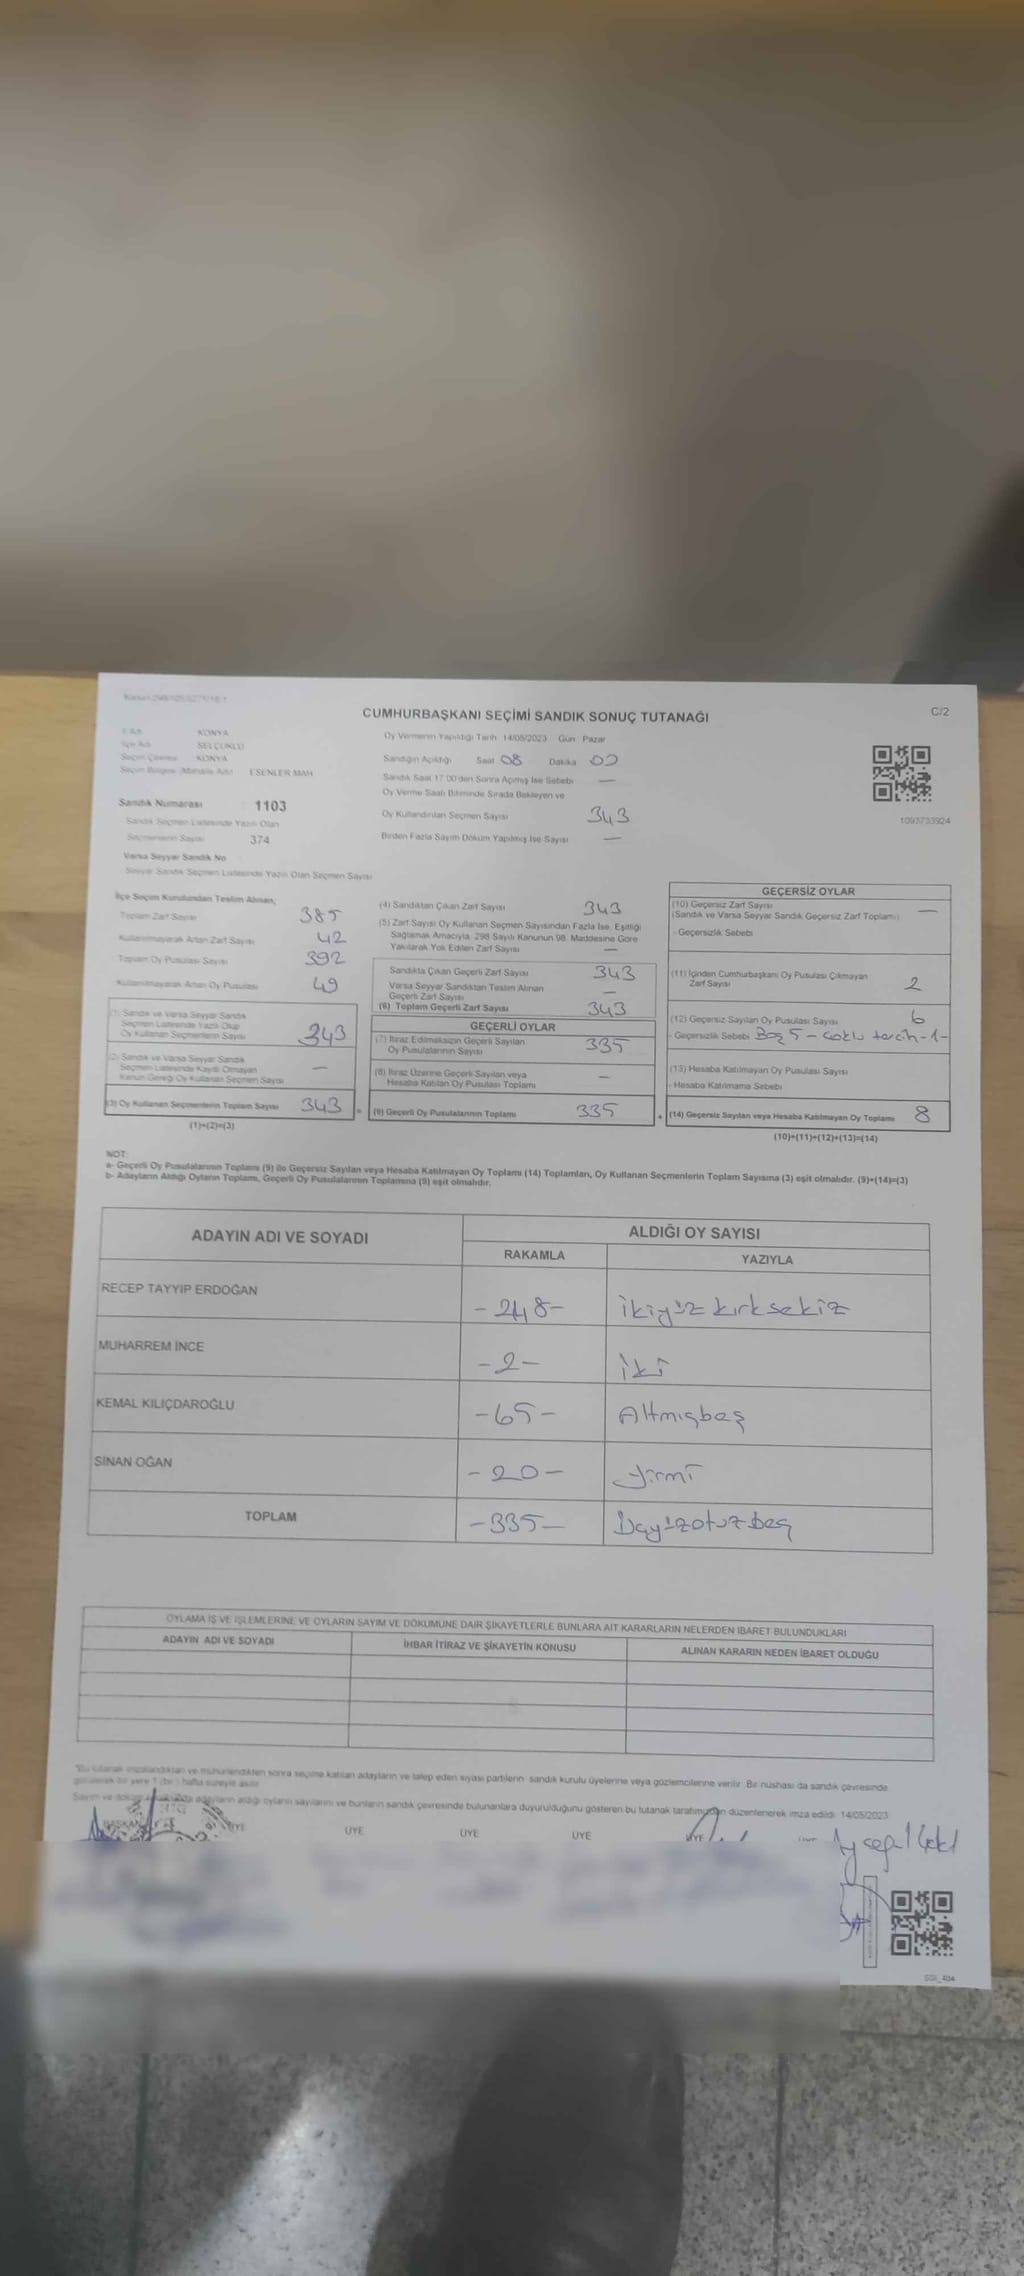 C/2
CUMHURBAŞKANI SEÇİMİ SANDIK SONUÇ TUTANAĞI
İl Adı KONYA
İlçe Adı SELÇUKLU
Seçim Çevresi KONYA
Seçim Bölgesi (Mahalle Adı) ESENLER MAH
Sandık Numarası 1103
Sandık Seçmen Listesinde Yazılı Olan
Seçmenlerin Sayısı 374
Varsa Seyyar Sandık No
Seyyar Sandık Seçmen Listesinde Yazılı Olan Seçmen Sayısı
Oy Vermenin Yapıldığı Tarih 14/05/2023 Gün Pazar
Sandığın Açıldığı Saat 08 Dakika 00
Sandık Saat 17:00'den Sonra Açılmış İse Sebebi —
Oy Verme Saati Bitiminde Sırada Bekleyen ve
Oy Kullandırılan Seçmen Sayısı 343
Birden Fazla Sayım Döküm Yapılmış İse Sayısı —
1093733924
İlçe Seçim Kurulundan Teslim Alınan;
Toplam Zarf Sayısı 385
Kullanılmayarak Artan Zarf Sayısı 42
Toplam Oy Pusulası Sayısı 392
Kullanılmayarak Artan Oy Pusulası 49
(1) Sandık ve Varsa Seyyar Sandık
Seçmen Listesinde Yazılı Olup
Oy Kullanan Seçmenlerin Sayısı 343
(2) Sandık ve Varsa Seyyar Sandık
Seçmen Listesinde Kayıtlı Olmayan
Kanun Gereği Oy Kullanan Seçmen Sayısı —
(3) Oy Kullanan Seçmenlerin Toplam Sayısı 343
(1)+(2)=(3)
(4) Sandıktan Çıkan Zarf Sayısı 343
(5) Zarf Sayısı Oy Kullanan Seçmen Sayısından Fazla İse, Eşitliği
Sağlamak Amacıyla, 298 Sayılı Kanunun 98. Maddesine Göre
Yakılarak Yok Edilen Zarf Sayısı —
Sandıkta Çıkan Geçerli Zarf Sayısı 343
Varsa Seyyar Sandıktan Teslim Alınan
Geçerli Zarf Sayısı —
(6) Toplam Geçerli Zarf Sayısı 343
GEÇERLİ OYLAR
(7) İtiraz Edilmeksizin Geçerli Sayılan
Oy Pusulalarının Sayısı 335
(8) İtiraz Üzerine Geçerli Sayılan veya
Hesaba Katılan Oy Pusulası Toplamı —
= (9) Geçerli Oy Pusulalarının Toplamı 335
GEÇERSİZ OYLAR
(10) Geçersiz Zarf Sayısı —
(Sandık ve Varsa Seyyar Sandık Geçersiz Zarf Toplamı)
- Geçersizlik Sebebi
(11) İçinden Cumhurbaşkanı Oy Pusulası Çıkmayan
Zarf Sayısı 2
(12) Geçersiz Sayılan Oy Pusulası Sayısı 6
- Geçersizlik Sebebi Boş 5 - çoklu tercih -1-
(13) Hesaba Katılmayan Oy Pusulası Sayısı
- Hesaba Katılmama Sebebi
+ (14) Geçersiz Sayılan veya Hesaba Katılmayan Oy Toplamı 8
(10)+(11)+(12)+(13)=(14)
NOT:
a- Geçerli Oy Pusulalarının Toplamı (9) ile Geçersiz Sayılan veya Hesaba Katılmayan Oy Toplamı (14) Toplamları, Oy Kullanan Seçmenlerin Toplam Sayısına (3) eşit olmalıdır. (9)+(14)=(3)
b- Adayların Aldığı Oyların Toplamı, Geçerli Oy Pusulalarının Toplamına (9) eşit olmalıdır.
ADAYIN ADI VE SOYADI ALDIĞI OY SAYISI
RAKAMLA YAZIYLA
RECEP TAYYİP ERDOĞAN -248- İkiyüz kırksekiz
MUHARREM İNCE -2- İki
KEMAL KILIÇDAROĞLU -65- Altmışbeş
SİNAN OĞAN -20- Yirmi
TOPLAM -335- Üçyüzotuzbeş
OYLAMA İŞ VE İŞLEMLERİNE VE OYLARIN SAYIM VE DÖKÜMÜNE DAİR ŞİKAYETLERLE BUNLARA AİT KARARLARIN NELERDEN İBARET BULUNDUKLARI
ADAYIN ADI VE SOYADI İHBAR İTİRAZ VE ŞİKAYETİN KONUSU ALINAN KARARIN NEDEN İBARET OLDUĞU
"Bu tutanak imzalandıktan ve mühürlendikten sonra seçime katılan adayların ve talep eden siyasi partilerin sandık kurulu üyelerine veya gözlemcilerine verilir. Bir nüshası da sandık çevresinde
görülecek bir yere 1 (bir) hafta süreyle asılır.
Sayım ve döküm adayların aldığı oyların sayılarını ve bunların sandık çevresinde bulunanlara duyurulduğunu gösteren bu tutanak tarafımızdan düzenlenerek imza edildi. 14/05/2023
BAŞKAN ÜYE ÜYE ÜYE ÜYE ÜYE